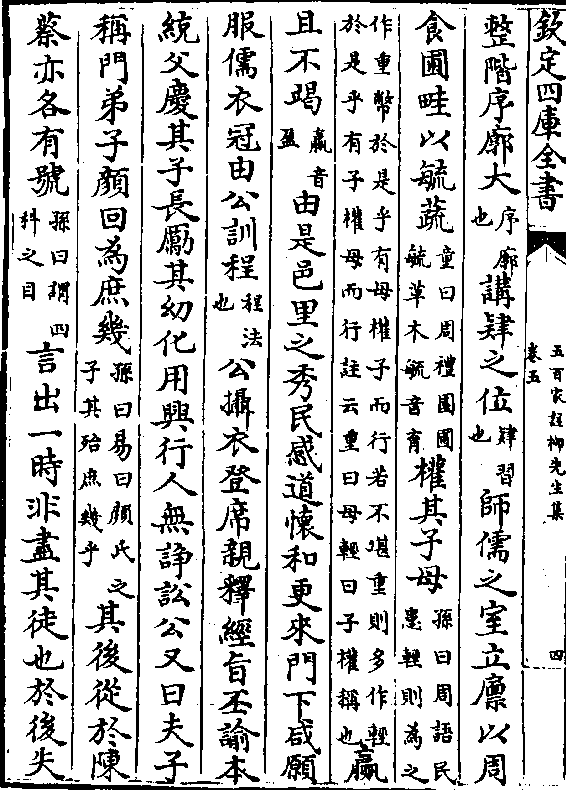 欽定四庫全書
五百家註柳先生集
卷五
四
整階序廓大序廓也講肄之位肄習也師儒之室立廪以周
食圃畦以毓蔬童曰周禮園圃毓草木毓音育權其子母孫曰周語民患輕則為之
作重幣於是乎有母權子而行若不堪重則多作輕於是乎有子權母而行註云重曰母輕曰子權稱也贏
且不竭贏音盈由是邑里之秀民感道懷和更來門下咸願
服儒衣冠由公訓程程法也公攝衣登席親釋經旨丕諭本
統父慶其子長勵其幼化用興行人無諍訟公又曰夫子
稱門弟子顔回為庶幾孫曰易曰顔氏之子其殆庶幾乎其後從於陳
蔡亦各有號孫曰謂四科之目言出一時非盡其徒也於後失